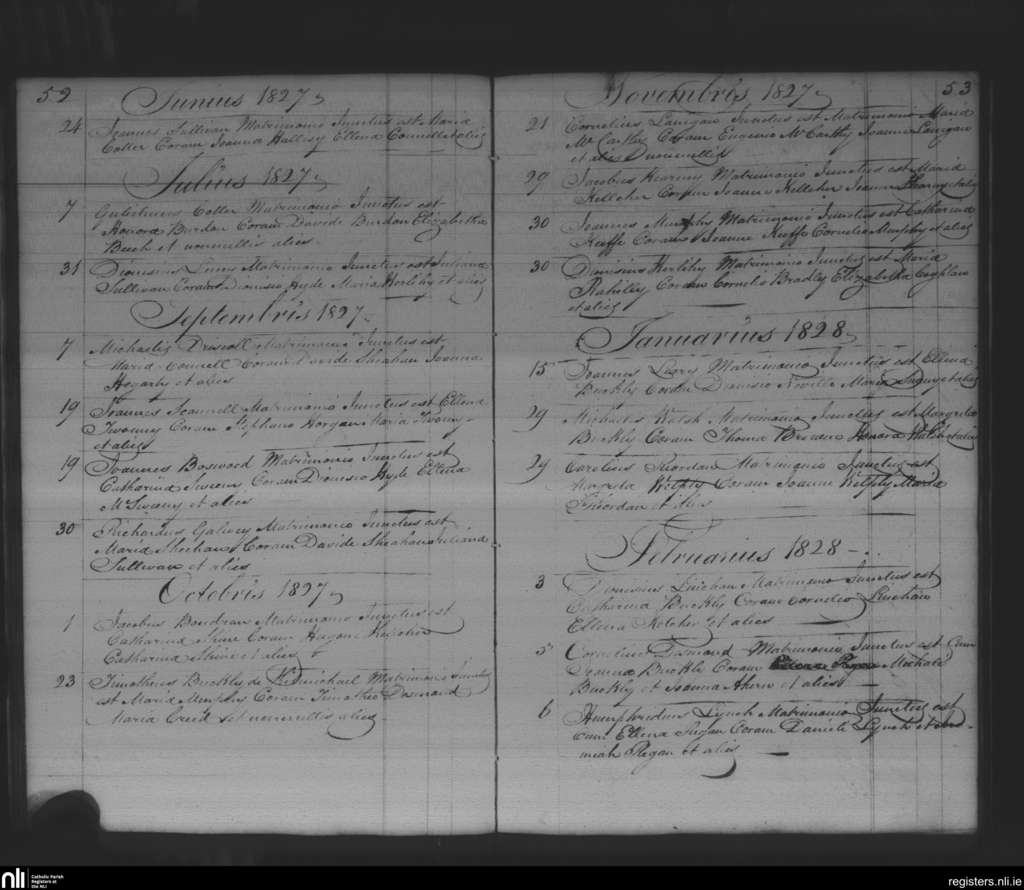 52
Junius 1827
24 Joannes Sullivan Matrimonio Junctus est Maria
Cotter Coram Joanna Hallisy Ellena Connell et aliis
Julius 1827
7 Gulielmus Cotter Matrimonio Junctus est
Honora Burdon Coram Davide Burdon Elizabetha
et nonnullis aliis
31 Dionisius Matrimonio Junctus est Juliana
Sullivan Coram Dionisio Hyde Maria Herlihy et aliis
Septembris 1827
7 Michaelis Driscoll Matrimonio Junctus est
Maria Connell Coram Davide Sheahan Joanna
Hogarty et aliis
19 Joannes Scannell Matrimonio Junctus est Ellena
Twomy Coram Stephano Horgan Maria Twomy
et aliis
19 Joannes Boswood Matrimonio Junctus est
Catharina Coram Dionisio Hyde Ellena
McSweeny et aliis
30 Richardus Galwey Matrimonio Junctus est
Maria Sheehan Coram Davide Sheahan Juliana
Sullivan et aliis
Octobris 1827
1 Jacobus Boudran Matrimonio Junctus est
Catharina Shine Coram
Catharina Shine et aliis
23 Timotheus Buckley de Kilmichael Matrimonio Junctus
est Maria Murphy Coram Timotheo Desmond
Maria Creed et nonnullis aliis
53
Novembris 1827
21 Cornelius Lanigan Junctus est Matrimonio Maria
McCarthy Coram Eugenio McCarthy Joanna Lanigan
et aliis nonnullis
29 Jacobus Kearney Matrimonio Junctus est Maria
Kelleher Coram Joanne Kelleher Joanna Kearney et aliis
30 Joannes Murphy Matrimonio Junctus est Catharina
Keeffe Coram Joanne Keeffe Cornelio Murphy et aliis
30 Dionisius Herlihy Matrimonio Junctus est Maria
Rahilly Coram Cornelio Bradley Elizabetha Coghlan
et aliis
Januarius 1828
15 Joannes Matrimonio Junctus est Ellena
Buckly Coram Dionisio Maria et aliis
29 Michaelis Welsh Matrimonio Junctus est Margarita
Buckly Coram Thoma Honora Walsh et aliis
29 Carolus Riordan Matrimonio Junctus est
Welply Coram Joanne Welply Maria
Riordan et aliis
Februarius 1828
3 Dionisius Linehan Matrimonio Junctus est
Catharina Buckly Coram Cornelio Linehan
Ellena Kelcher et aliis
5 Cornelius Desmond Matrimonio Junctus est Cum
Joanna Buckly Coram Michale
Buckly et Joanna Ahern et aliis
6 Humphredus Lynch Matrimonio Junctus est
cum Ellena Regan Coram Daniele Lynch et Jere-
miah Regan et aliis
nli
Catholic Parish
Registers at
the NLI
registers.nli.ie